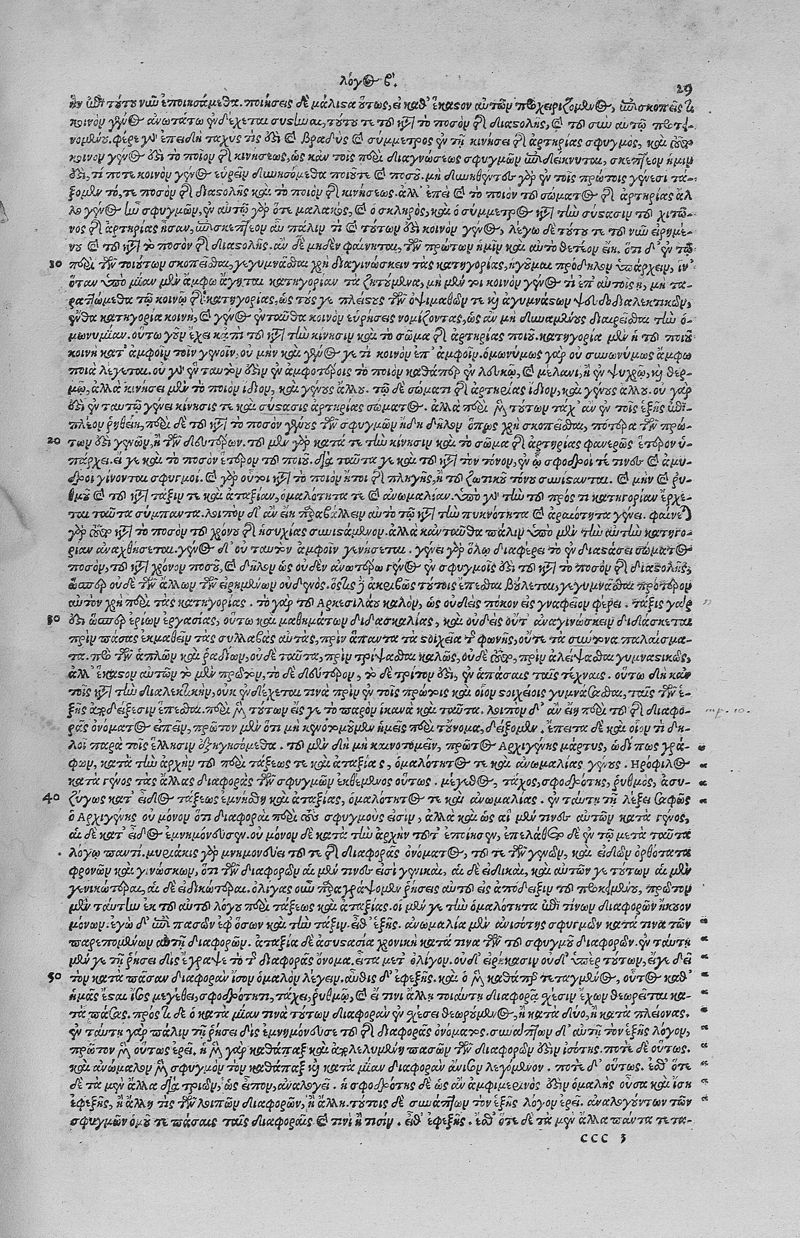 λόγος β'. 29
ἢν ἐπὶ τούτου νῦν ἐποιησάμεθα. ποιήσεις δὲ μάλιστα οὕτως, εἰ καθ' ἕκαστον αὐτῶν προχειριζόμενος, ἐπισκοπεῖς
κοινὸν γένος ἀνωτάτω ἐνδέχεται συστῆναι, τούτου τε τοῦ κατὰ τὸ ποσὸν τῆς διαστολῆς, καὶ τοῦ σὺν αὐτῷ
φέρε γὰρ ἐπειδὴ ταχύς τις ἐστὶ καὶ βραδὺς καὶ σύμμετρος ἐν τῇ κινήσει τῆς ἀρτηρίας σφυγμός, καὶ
κοινὸν γένος ἐστὶ τὸ ποιὸν τῆς κινήσεως, ὡς κἀν τοῖς περὶ διαγνώσεως σφυγμῶν ἐπιδείκνυται, σκεπτέον ἡμῖν
ἐστὶ, τί ποτε κοινὸν γένος εὑρεῖν δυνησόμεθα ποιοῦ τε καὶ ποσοῦ. μὴ δυνηθέντες γὰρ ἐν τοῖς πρώτοις γένεσι
τό, τε ποσὸν τῆς διαστολῆς καὶ τὸ ποιὸν τῆς κινήσεως. ἀλλ' ἐπεὶ καὶ τὸ ποιὸν τοῦ σώματος τῆς ἀρτηρίας ἄλ
λο γένος ἦν σφυγμῶν, ἐν αὐτῷ γὰρ ὅτε μαλακὸς, καὶ ὁ σκληρὸς, καὶ ὁ σύμμετρος κατὰ τὴν σύστασιν τοῦ χιτῶ-
νος τῆς ἀρτηρίας ἦσαν, ἐπισκεπτέον αὖ πάλιν τί καὶ τούτων ἐστὶ κοινὸν γένος, λέγω δὲ τούτου τε τοῦ νῦν εἰρημέ-
νου καὶ τοῦ κατὰ τὸ ποσὸν τῆς διαστολῆς. ἂν δὲ μηδὲν φαίνηται, τῶν πρώτων ἡμῖν καὶ αὐτὸ θετέον εἴη. ὅτι δ' ἐν τῷ
30 περὶ τῶν τοιούτων σκοπεῖσθαι, γεγυμνάσθαι χρὴ διαγινώσκειν τὰς κατηγορίας, ἡγοῦμαι πρόδηλον ὑπάρχειν, ἵν'
ὅταν ὑπὸ μίαν μὲν ἄμφω ἄγηται κατηγορίαν τὰ ζητούμενα, μὴ μέντοι κοινὸν γένος τι ἐπ' αὐτοῖς ᾖ, μὴ τα-
ραττώμεθα τῷ κοινῷ τῆς κατηγορίας, ὥς τούς γε πλείστους τῶν ὀψιμαθῶν τε καὶ ἀγυμνάστων ψευδοδιαλεκτικῶν,
ἔνθα κατηγορία κοινὴ, καὶ γένος ἐνταῦθα κοινὸν εὑρήσεις νομίζοντας, ὡς ἂν μὴ δυναμένους διαιρεῖσθαι τὴν ὁ-
μωνυμίαν. οὕτω γοῦν ἔχει κἀπὶ τοῦ κατὰ τὴν κίνησιν καὶ τὸ σῶμα τῆς ἀρτηρίας ποιοῦ. κατηγορία μὲν ἡ τοῦ ποιοῦ
κοινὴ κατ' ἀμφοῖν τοῖν γενοῖν. οὐ μὴν καὶ γένος γέ τι κοινὸν ἐπ' ἀμφοῖν. ὁμωνύμως γὰρ οὐ συνωνύμως ἄμφω
ποιὰ λέγεται. οὐ γὰρ ἐν ταὐτόν ἐστιν ἐν ἀμφοτέροις τὸ ποιὸν καθάπερ ἐν λευκῷ, καὶ μέλανι, ἢ ἐν ψυχρῷ, καὶ θερ-
μῷ, ἀλλὰ κινήσει μὲν τὸ ποιὸν ἴδιον, καὶ γένους ἄλλου. τῷ δὲ σώματι τῆς ἀρτηρίας ἴδιον, καὶ γένους ἄλλου. οὐ γάρ
ἐστι ἐν ταὐτῷ γένει κίνησίς τε καὶ σύστασις ἀρτηρίας σώματος. ἀλλὰ περὶ μὲν τούτων τάχ' ἂν ἐν τοῖς ἑξῆς ἐπὶ
πλέον ῥηθείη, περὶ δὲ τοῦ κατὰ τὸ ποσὸν γένους τῶν σφυγμῶν ἤδη δῆλον ὅπως χρὴ σκοπεῖσθαι, πότερα τῶν πρώ-
20 των ἐστὶ γενῶν, ἢ τῶν δευτέρων. τοῦ μὲν γὰρ κατά τε τὴν κίνησιν καὶ τὸ σῶμα τῆς ἀρτηρίας φανερῶς ἕτερον ὑ-
πάρχει. εἴ γε καὶ τὸ ποσὸν ἕτερον τοῦ ποιοῦ. διὰ ταῦτα γε καὶ τοῦ κατὰ τὸν τόνον, ἐν ᾧ σφοδροί τέ τινες καὶ ἀμυ-
δροὶ γίνονται σφυγμοί. καὶ γὰρ οὗτοι κατὰ τὸ ποιὸν ἤτοι τῆς πληγῆς, ἢ τοῦ ζωτικοῦ τόνου συνίστανται. καὶ μὴν καὶ ῥυ-
θμοῦ καὶ τοῦ κατὰ τάξιν τε καὶ ἀταξίαν, ὁμαλότητά τε καὶ ἀνωμαλίαν. ὑπὸ γὰρ τὴν τοῦ πρός τι κατηγορίαν ἔρχε-
ται ταῦτα σύμπαντα. λοιπὸν δ' ἂν εἴη παραβάλλειν αὐτὸ τῷ κατὰ τὴν πυκνότητα καὶ ἀραιότητα γένει. φαίνεται
γὰρ κατὰ τὸ ποσὸν τοῦ χρόνου τῆς ἡσυχίας συνιστάμενον. ἀλλὰ κἀνταῦθα πάλιν ὑπὸ μὲν τὴν αὐτὴν κατηγο-
ρίαν ἀναχθήσεται. γένος δ' οὐ ταὐτὸν ἀμφοῖν γενήσεται. γένει γὰρ ὅλῳ διαφέρει τὸ ἐν διαστάσει σώματος
ποσὸν, τοῦ κατὰ χρόνον ποσοῦ. καὶ δῆλον ὡς οὐδὲν ἀνωτέρω γένος ἐν σφυγμοῖς ἐστὶ τοῦ κατὰ τὸ ποσὸν τῆς διαστολῆς,
ὥσπερ οὐδὲ τῶν ἄλλων τῶν εἰρημένων οὐδενός. ὅστις δὲ ἀκριβῶς τούτοις ἕπεσθαι βούλεται, γεγυμνάσθαι πρότερον
αὐτὸν χρὴ περὶ τὰς κατηγορίας. τὸ γὰρ τοῦ Ἀρκεσιλάου καλὸν, ὡς οὐδεὶς πόκον εἰς γναφεῖον φέρει. τάξις γάρ
30 ἐστι ὥσπερ ἐρίων ἐργασίας, οὕτω καὶ μαθημάτων διδασκαλίας, καὶ οὐδεὶς οὔτ' ἀναγινώσκειν διδάσκεται
πρὶν πάσας ἐκμαθεῖν τὰς συλλαβὰς αὐτὰς, πρὶν ἅπαντα τὰ στοιχεῖα τῆς φωνῆς, οὔτε τὰ σύντονα παλαίσμα-
τα. πρὸ τῶν ἁπλῶν καὶ ῥᾳδίων, οὐδὲ ταῦτα, πρὶν τρίψασθαι καλῶς, οὐδὲ πρὶν ἀλείψασθαι γυμναστικῶς,
ἀλλ' ἕκαστον αὐτῶν τὸ μὲν πρῶτον, τὸ δὲ δεύτερον, τὸ δὲ τρίτον ἐστὶ, ἐν ἁπάσαις ταῖς τέχναις. οὕτω δὴ κἀν
τοῖς κατὰ τὴν διαλεκτικὴν, οὐκ ἐνδέχεταί τινα πρὶν ἐν τοῖς πρώτοις καὶ οἷον στοιχείοις γυμνάσασθαι, ταῖς τῶν ἑ-
ξῆς ἀποδείξεσιν ἕπεσθαι. περὶ μὲν τούτων εἴς γε τὸ παρὸν ἱκανὰ καὶ ταῦτα. λοιπὸν δ' ἂν εἴη περὶ τῆς διαφο-
ρᾶς ὀνόματος εἰπεῖν, πρῶτον μὲν ὅτι μὴ κενοτομοῦμεν ἡμεῖς περὶ τὔνομα, δείξομεν. ἔπειτα δὲ καὶ οἷόν τι δη-
λοῖ παρὰ τοῖς ἕλλησιν ἐξηγησόμεθα. τοῦ μὲν δὴ μὴ καινοτομεῖν, πρῶτος Ἀρχιγένης μάρτυς, ὡδί πως γρά-
φων, κατὰ τὴν ἀρχὴν τοῦ περὶ τάξεώς τε καὶ ἀταξίας, ὁμαλότητός τε καὶ ἀνωμαλίας γένους. Ἡρόφιλος
κατὰ γένος τὰς ἄλλας διαφορὰς τῶν σφυγμῶν ἐκθέμενος οὕτως. μέγεθος, τάχος, σφοδρότης, ῥυθμὸς, ἀσυ-
40 ζύγως κατ' εἶδος τάξεως ἐμνήσθη καὶ ἀταξίας, ὁμαλότητός τε καὶ ἀνωμαλίας. ἐν ταύτῃ τῇ λέξει σαφῶς
ὁ Ἀρχιγένης οὐ μόνον ὅτι διαφοραὶ περὶ τοὺς σφυγμούς εἰσιν, ἀλλὰ καὶ ὡς αἱ μέν τινες αὐτῶν κατὰ γένος,
αἱ δὲ κατ' εἶδος ἐμνημόνευσεν. οὐ μόνον δὲ κατὰ τὴν ἀρχὴν τοῦτ' ἐποίησεν, ἐπελάθετο δὲ ἐν τῷ μετὰ ταῦτα
λόγῳ παντί. μυριάκις γὰρ μνημονεύει τοῦ τε τῆς διαφορᾶς ὀνόματος, τοῦ τε τῶν γενῶν, καὶ εἰδῶν ὀρθότατα
φρονῶν καὶ γινώσκων, ὅτι τῶν διαφορῶν αἱ μέν τινές εἰσι γενικαὶ, αἱ δὲ εἰδικαὶ, καὶ αὐτῶν γε τούτων αἱ μὲν
γενικώτεραι, αἱ δὲ εἰδικώτεραι. ὀλίγας οὖν παραγράψομεν ῥήσεις αὐτοῦ εἰς ἀπόδειξιν τοῦ προκειμένου, πρῶτον
μὲν ταύτην ἐκ τοῦ αὐτοῦ λόγου περὶ τάξεως καὶ ἀταξίας. οἱ μέν γε τὴν ὁμαλότητα ἐπὶ τίνων διαφορῶν ἤκουον
μόνων. ἐγὼ δ' ἐπὶ πασῶν ἐφ' ὅσων καὶ τὴν τάξιν. εἶθ' ἑξῆς. ἀνωμαλία μὲν ἀνισότης σφυγμῶν κατά τινα τῶν
παρεπομένων αὐτῇ διαφορῶν. ἀταξία δὲ ἀσυστασία χρονικὴ κατά τινα τῶν τοῦ σφυγμοῦ διαφορῶν. ἐν ταύτῃ
μέν γε τῇ ῥήσει δὶς ἔγραψε τὸ τῆς διαφορᾶς ὄνομα. εἶτα μετ' ὀλίγον. οὐδ' εἰρήκασιν οὐδ' ὑπὲρ τούτων, εἴγε δεῖ
50 τὸν κατὰ πᾶσαν διαφορὰν ἴσον ὁμαλὸν λέγειν. αὖθις δ' ἐφεξῆς. καὶ ὁ μὲν καθάπαξ τεταγμένος, οὗτος καθ'
ἡμᾶς ἔσται ἴσος μεγέθει, σφοδρότητι, τάχει, ῥυθμῷ, καὶ εἴ τινι ἄλλῃ τοιαύτῃ διαφορᾷ σχέσιν ἔχων θεωρεῖται κα-
τὰ πάσας. πρὸς δὲ ὁ κατὰ μίαν τινὰ τούτων διαφορὰν ἐν σχέσει θεωρούμενος, ἢ κατὰ δύο, ἢ κατὰ πλείονας.
ἐν ταύτῃ γὰρ πάλιν τῇ ῥήσει δὶς ἐμνημόνευσε τοῦ τῆς διαφορᾶς ὀνόματος. συνάπτων δ' αὐτῇ τὸν ἑξῆς λόγον,
πρῶτον μὲν οὕτως ἐρεῖ. ἡ μὲν γὰρ καθάπαξ καὶ ἀπολελυμένη πασῶν τῶν διαφορῶν ἐστὶν ἰσότης. ποτὲ δὲ οὕτως.
καὶ ἀνώμαλον μὲν σφυγμὸν τὸν καθάπαξ καὶ κατὰ μίαν διαφορὰν ἄνισον λεγόμενον. ποτὲ δ' οὕτως. ἔσθ' ὅτε
δὲ τὰ μὲν ἄλλα διὰ τριῶν, ὡς εἶπον, ἀναλογεῖ. ἡ σφοδρότης δὲ ὡς ἂν ἀμφιμερινός ἐστιν ὁμαλὴς οὖσα καὶ ἴση
ἐφεξῆς, ἢ ἄλλη τις τῶν λοιπῶν διαφορῶν, ἢ ἄλλη. τούτοις δὲ συνάπτων τὸν ἑξῆς λόγον ἐρεῖ. ἀναλογούντων τῶν
σφυγμῶν ὁμοῦ τε πάσαις ταῖς διαφοραῖς καὶ τινὶ ἢ τισίν. εἶθ' ἐφεξῆς. ἔσθ' ὅτε δὲ τὰ μὲν ἄλλα πάντα τετα-
CCC 3